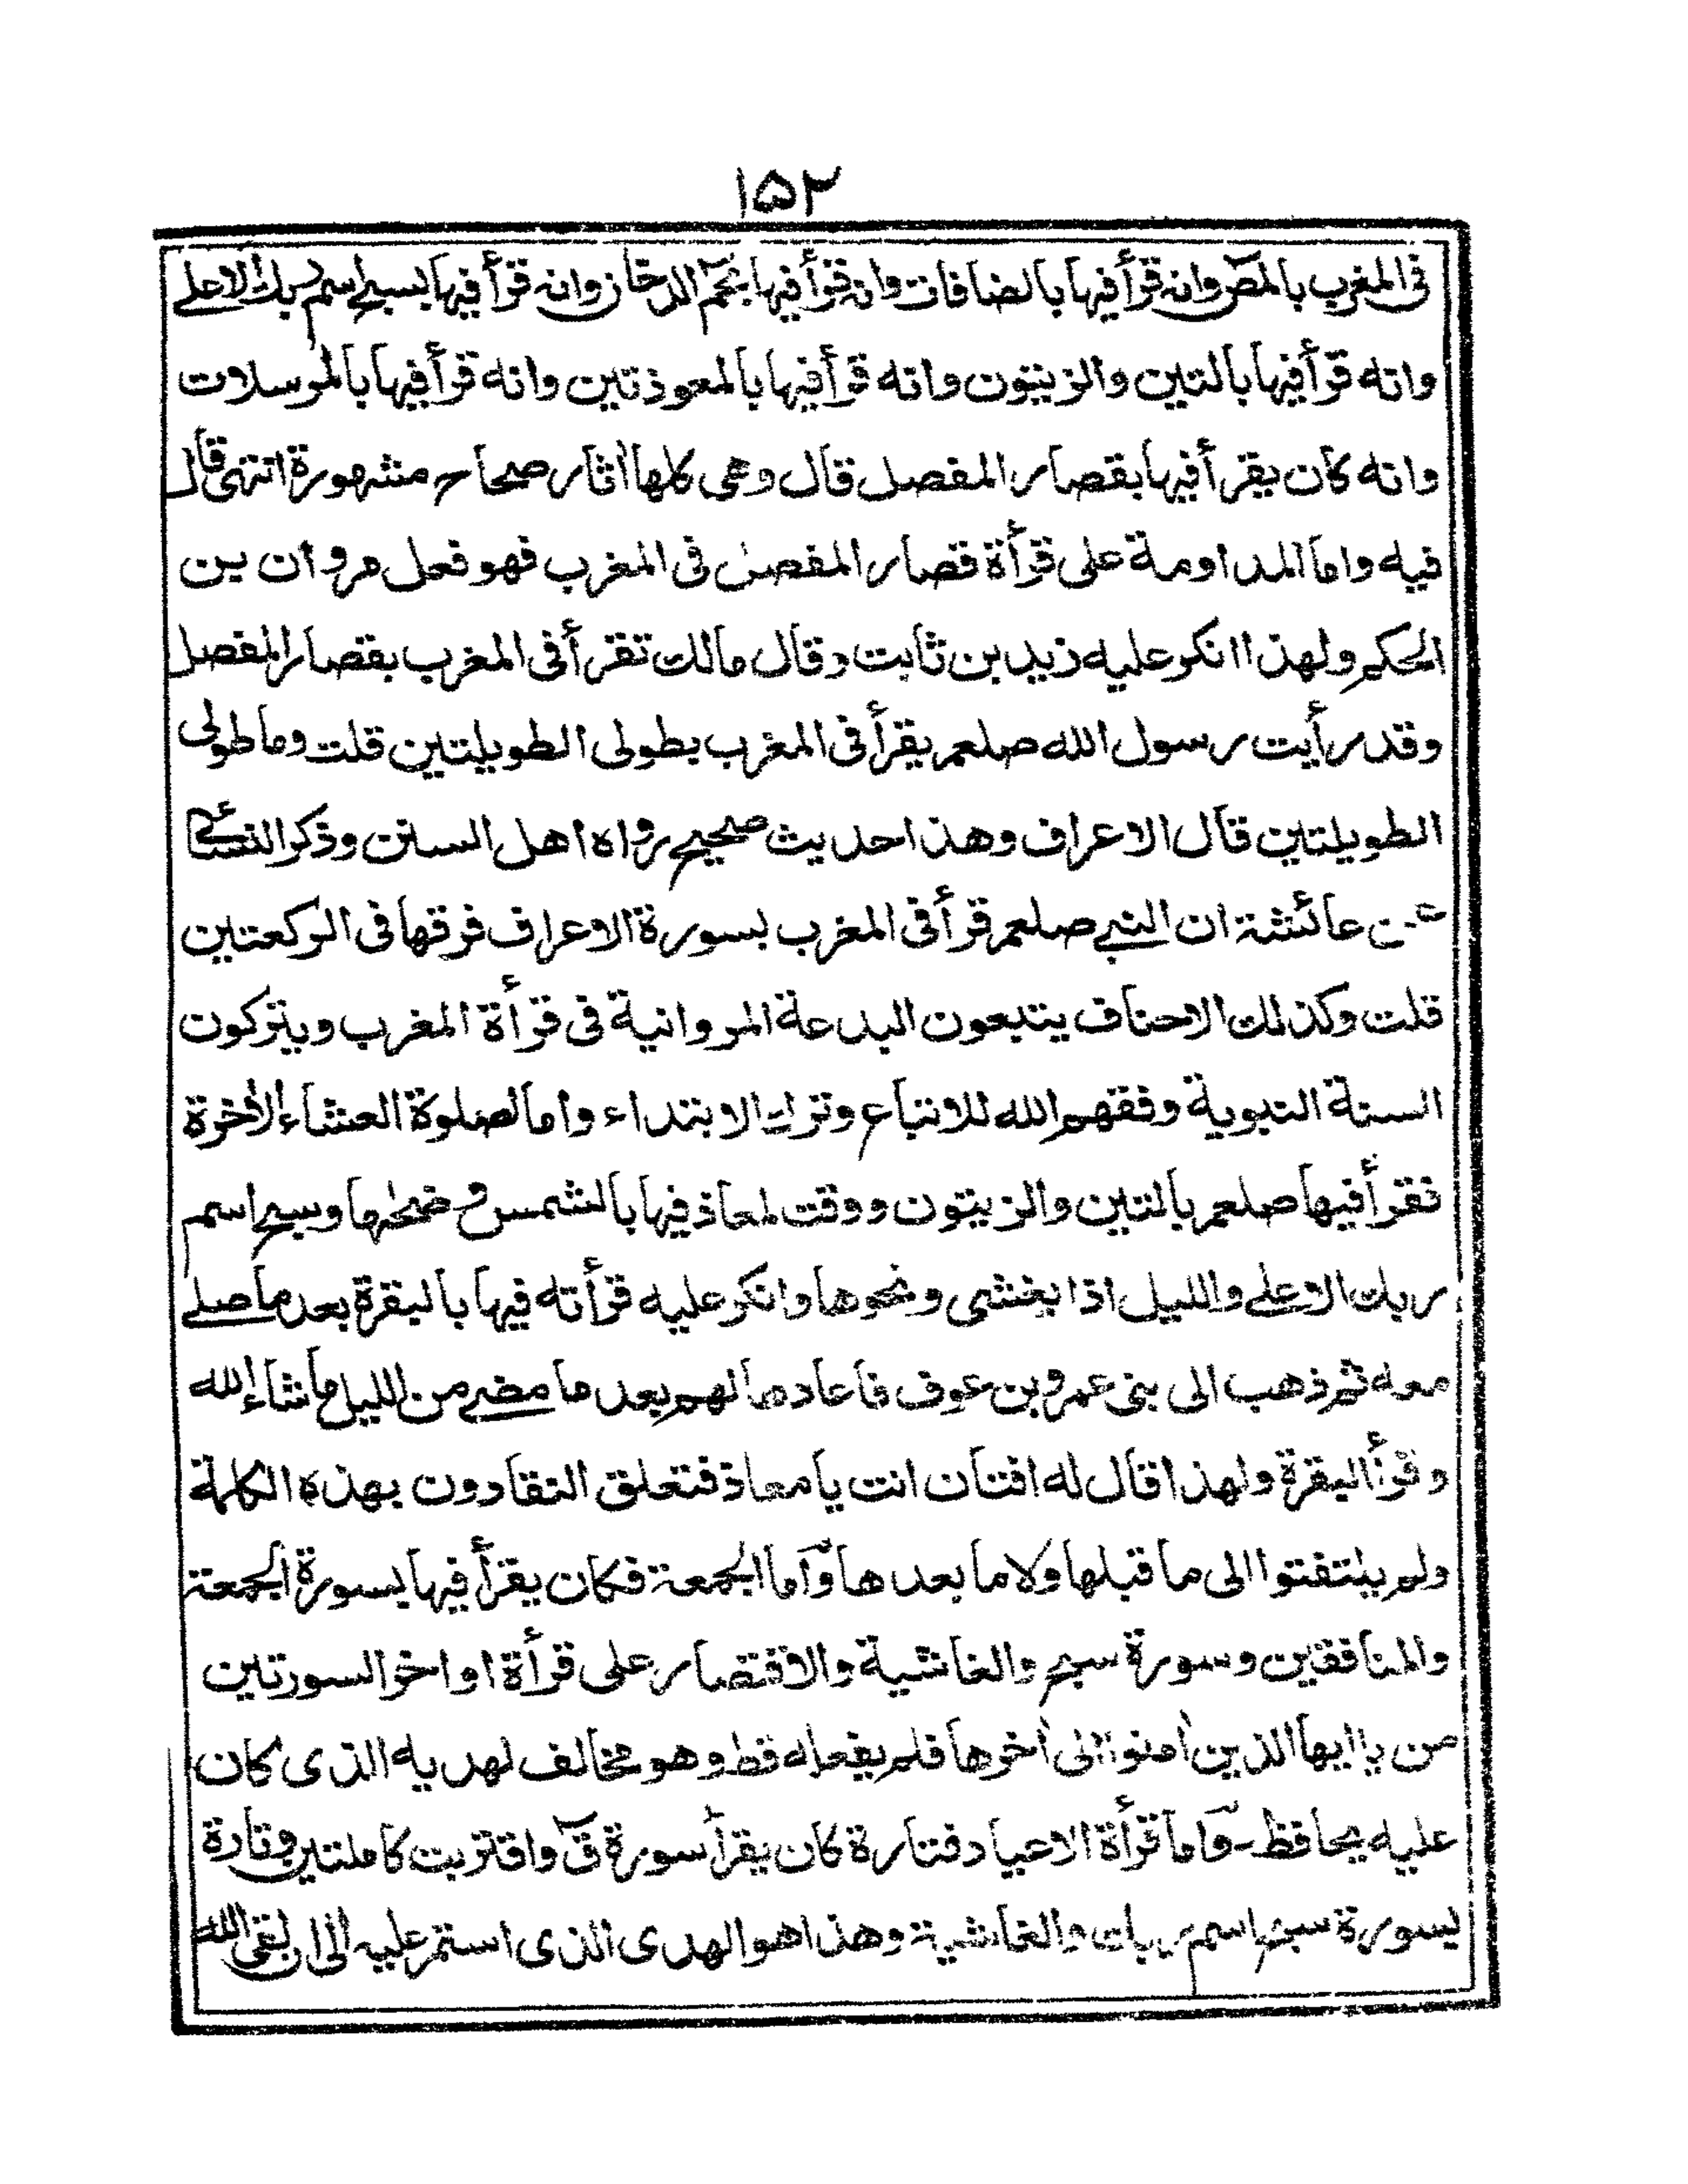 ١٥٢
فى المغرب بالمص وانه قرأ فيها بالصافات وانه قرأ فيها بحم الدخان وانه قرأ فيها بسبح اسم ربك الاعلى
وانه قرأ فيها بالتين والزيتون وانه قرأ فيها بالمعوذتين وانه قرأ فيها بالمرسلات
وانه كان يقرأ فيها بقصار المفصل قال وهى كلها اثار صحاح مشهورة انتهى قال
فيه واما المداومة على قرأة قصار المفصل فى المغرب فهو فعل مروان بن
الحكم ولهذا انكر عليه زيد بن ثابت وقال مالك تقرأ فى المغرب بقصار المفصل
وقد رأيت رسول الله صلعم يقرأ فى المغرب بطولى الطويلتين قلت وما طولى
الطويلتين قال الاعراف وهذا حديث صحيح رواه اهل السنن وذكر النسائى
عن عائشة ان النبى صلعم قرأ فى المغرب بسورة الاعراف فرقها فى الركعتين
قلت وكذلك الاحناف يتبعون البدعة المروانية فى قرأة المغرب ويتركون
السنة النبوية وفقهم الله للاتباع وترك الابتداء واما لصلوة العشاء الاخرة
نقرأ فيها صلعم بالتين والزيتون ووقت لمعاذ فيها بالشمس وضحٰها وسبح اسم
ربك الاعلى والليل اذا يغشى ونحوها وانكر عليه قرأته فيها بالبقرة بعد ما صلى
معه ثم ذهب الى بنى عمرو بن عوف فاعادها لهم بعد ما مضى من الليل ما شاء الله
وقرأ البقرة ولهذا قال له افتان انت يا معاذ فتعلق النقادون بهذه الكلمة
ولم يلتفتوا الى ما قبلها ولا ما بعدها واما الجمعة فكان يقرأ فيها بسورة الجمعة
والمنافقين وسورة سبح والغاشية والاقتصار على قرأة اواخر السورتين
من يا ايها الذين امنوا الى اخرها فلم يفعله قط وهو مخالف لهديه الذى كان
عليه يحافظ - واما قرأة الاعياد فتارة كان يقرأ سورة ق واقتربت كاملتين وتارة
بسورة سبح اسم ربك والغاشية وهذا هو الهدى الذى استمر عليه الى ان لقى الله